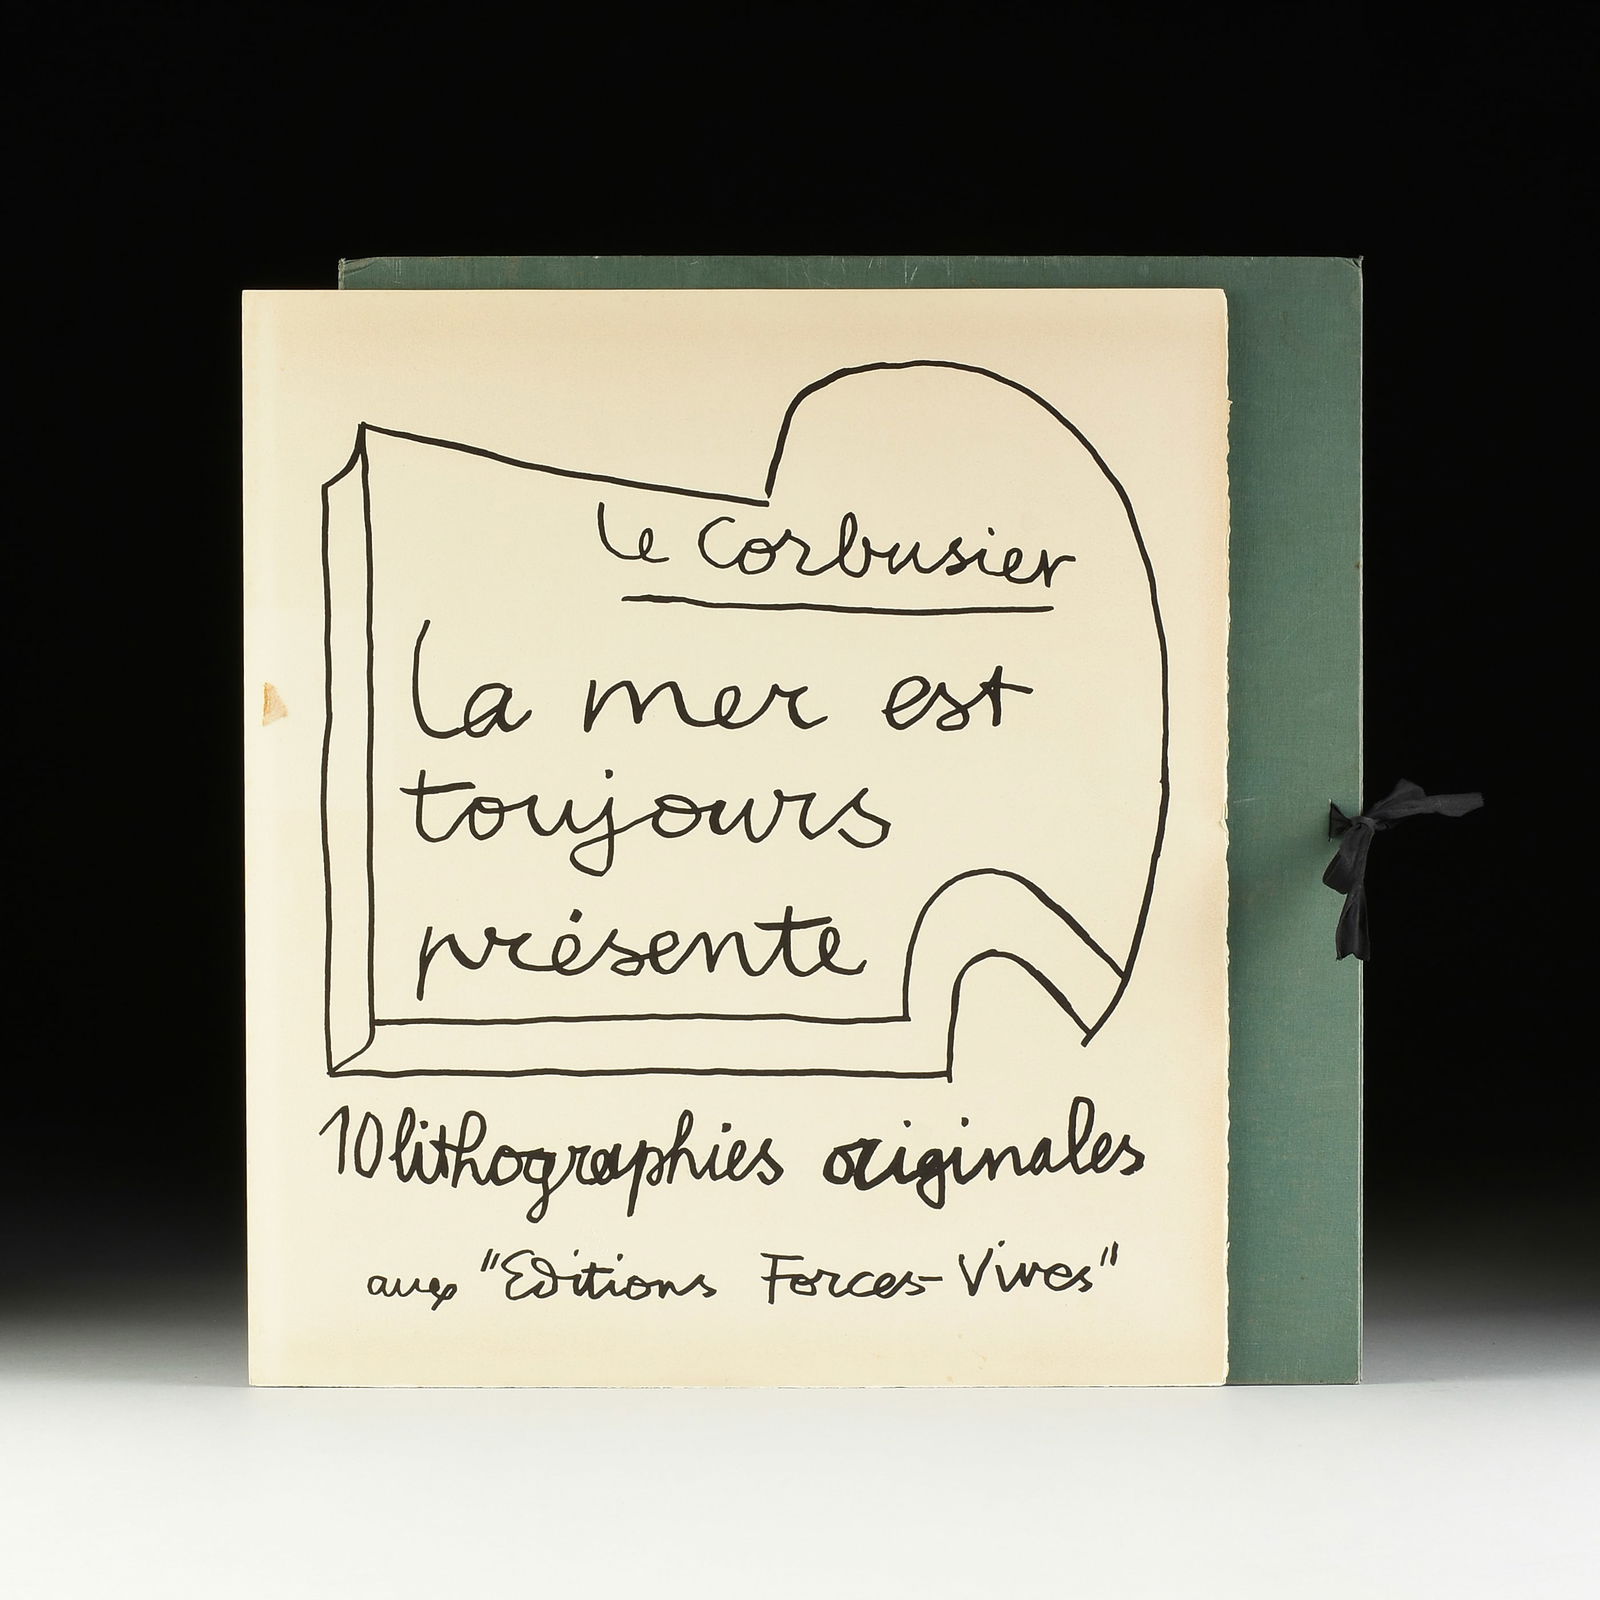 Le Corbusier
La mer est
toujours
présente
10 lithographies originales
aux "Editions Forces-Vives"